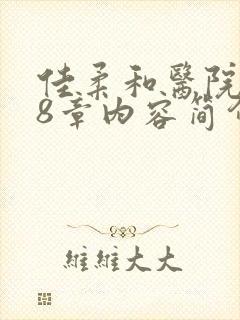 佳柔和醫院
8章內容簡介
維維大大